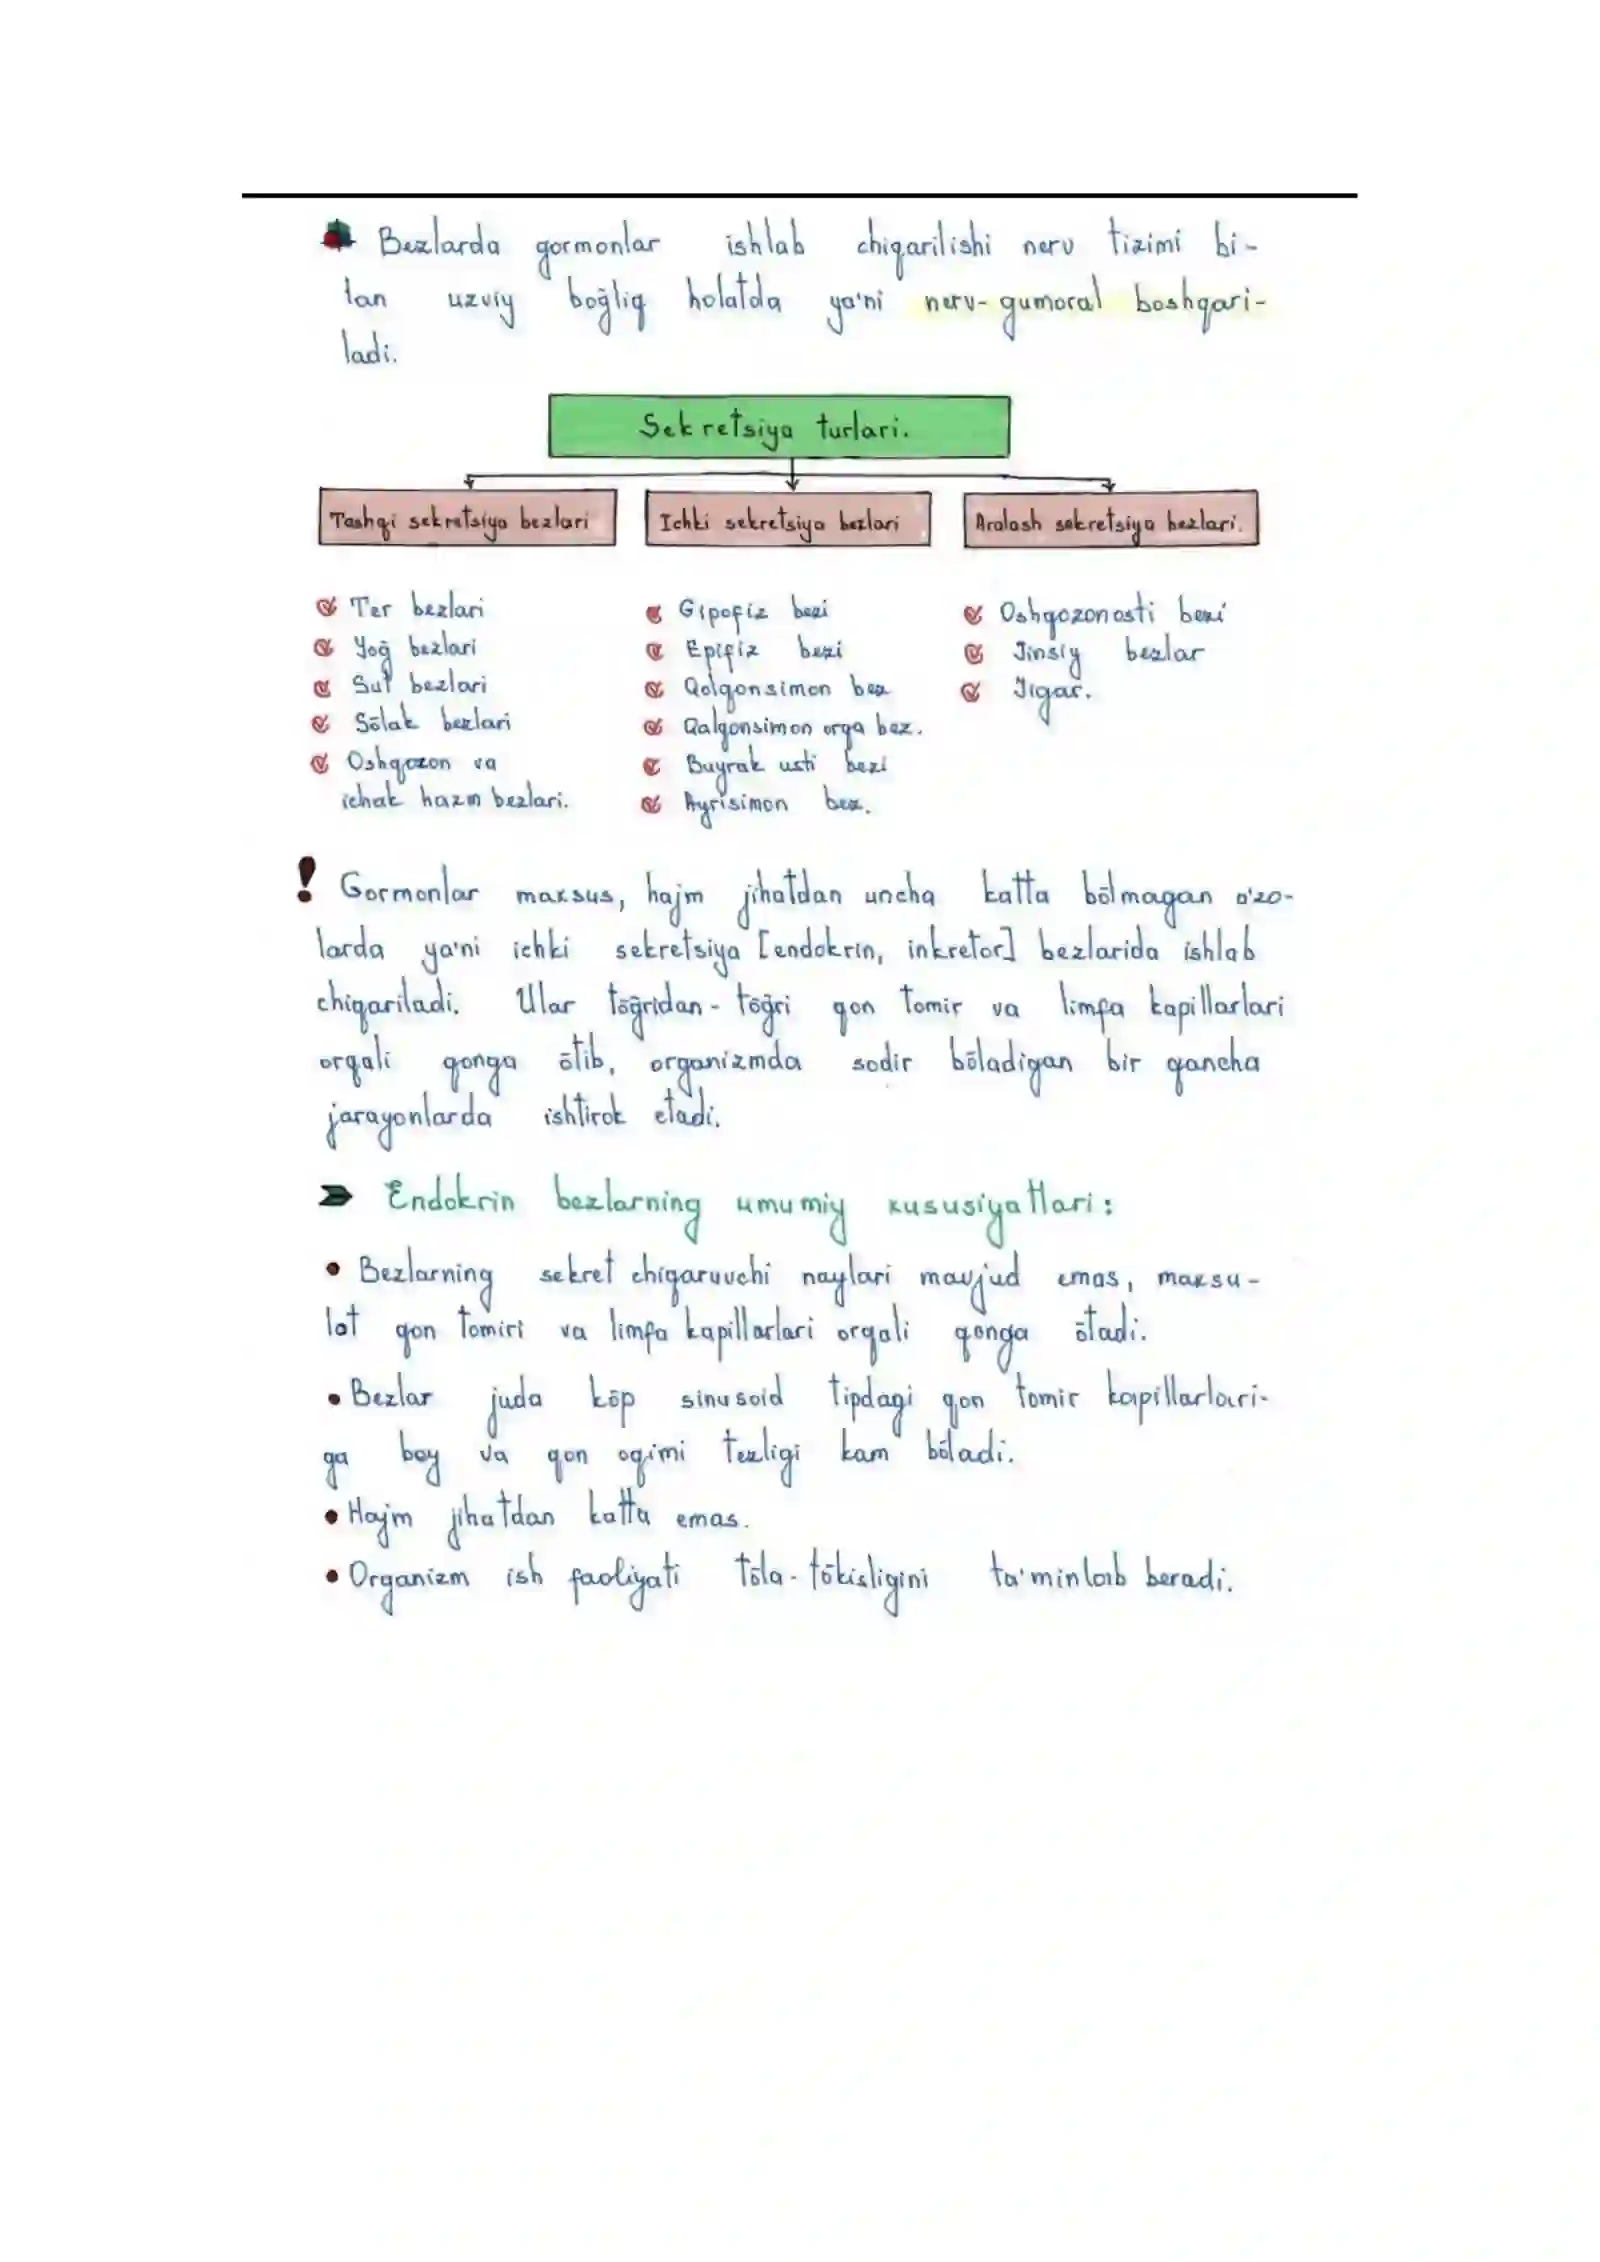 Bezlarda gormonlar ishlab chiqarilishi nerv tizimi bi-
lan uzviy boḡliq holatda ya'ni nerv-gumoral boshqari-
ladi.
Sekretsiya turlari.
Tashqi sekretsiya bezlari
Ichki sekretsiya bezlari
Aralash sekretsiya bezlari.
Ter bezlari
Yoḡ bezlari
Sut bezlari
Sōlak bezlari
Oshqozon va
ichak hazm bezlari.
Gipofiz bezi
Epifiz bezi
Qalqonsimon bez
Qalqonsimon orqa bez.
Buyrak usti bezi
Ayrisimon bez.
Oshqozonosti bezi
Jinsiy bezlar
Jigar.
! Gormonlar maxsus, hajm jihatdan uncha katta bōlmagan a'zo-
larda ya'ni ichki sekretsiya [endokrin, inkretor] bezlarida ishlab
chiqariladi. Ular tōḡridan-tōḡri qon tomir va limfa kapillarlari
orqali qonga ōtib, organizmda sodir bōladigan bir qancha
jarayonlarda ishtirok etadi.
➤ Endokrin bezlarning umumiy xususiyatlari:
• Bezlarning sekret chiqaruvchi naylari mavjud emas, maxsu-
lot qon tomiri va limfa kapillarlari orqali qonga ōtadi.
• Bezlar juda kōp sinusoid tipdagi qon tomir kapillarlari-
ga boy va qon oqimi tezligi kam bōladi.
• Hajm jihatdan katta emas.
• Organizm ish faoliyati tōla-tōkisligini ta'minlab beradi.